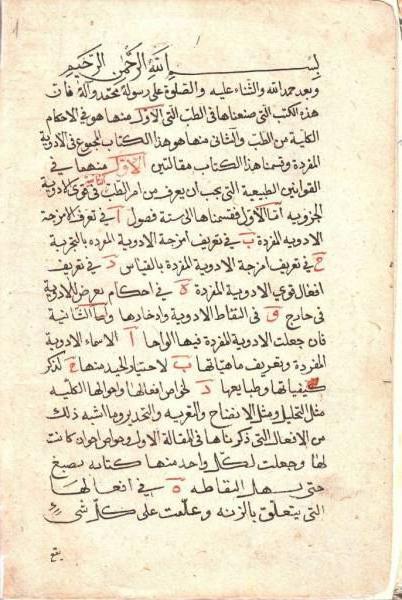 بسم الله الرحمن الرحيم
وبعد حمد الله والثناء عليه والصلوة على رسوله محمد وآله فان
هذه الكتب التى صنعناها فى الطب التى الاول منها هو فى الاحكام
الكلية من الطب والثانى منها هو هذا الكتاب المجموع فى الادوية
المفردة وقسمنا هذا الكتاب مقالتين الاولى منهما فى
القوانين الطبيعية التى يجب ان يعرف من امر الطب فى قوى الادوية
الجزويه اما الاول فقسمناها الى ستة فصول ا فى تعرف امزجة
الادويه المفردة ب فى تعريف امزجة الادوية المفرده بالتجربة
ج فى تعريف امزجة الادوية المفردة بالقياس د فى تعريف
افعال قوي الادوية المفردة ه فى احكام يعرض الادوية
فى خارج و فى التقاط الادوية وادخارها واما الثانية
فان جعلت الادوية المفردة فيها الواحا ا الاسماء الادوية
المفردة وتعريف ماهياتها ب لاختيار الجيد منها ج لذكر
كيفياتها وطبايعها د لخواص افعالها واحوالها الكليه
مثل التحليل ومثل الانضاج والتغريه والتخدير وما اشبه ذلك
من الافعال التى ذكرناها فى المقالة الاولى وخواص اخوان كانت
لها وجعلت لكل واحد منها كتابه بصبغ
حتى يسهل التقاطه ه فى افعالها
التى يتعلق بالزنه وعلمت على كل شى
يقع